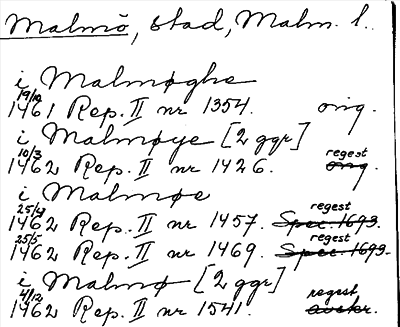 Malmö, stad, Malm. l.
i Malmøghe
19/10 1461 Rep. II nr 1354. orig.
i Malmøye [2 ggr]
10/3 1462 Rep. II nr 1426. regest orig.
i Malmøe
25/4 1462 Rep. II nr 1457. regest Spec. 1693.
25/5 1462 Rep. II nr 1469. regest Spec. 1693.
i Malmø [2 ggr]
4/12 1462 Rep. II nr 1541. regest avskr.